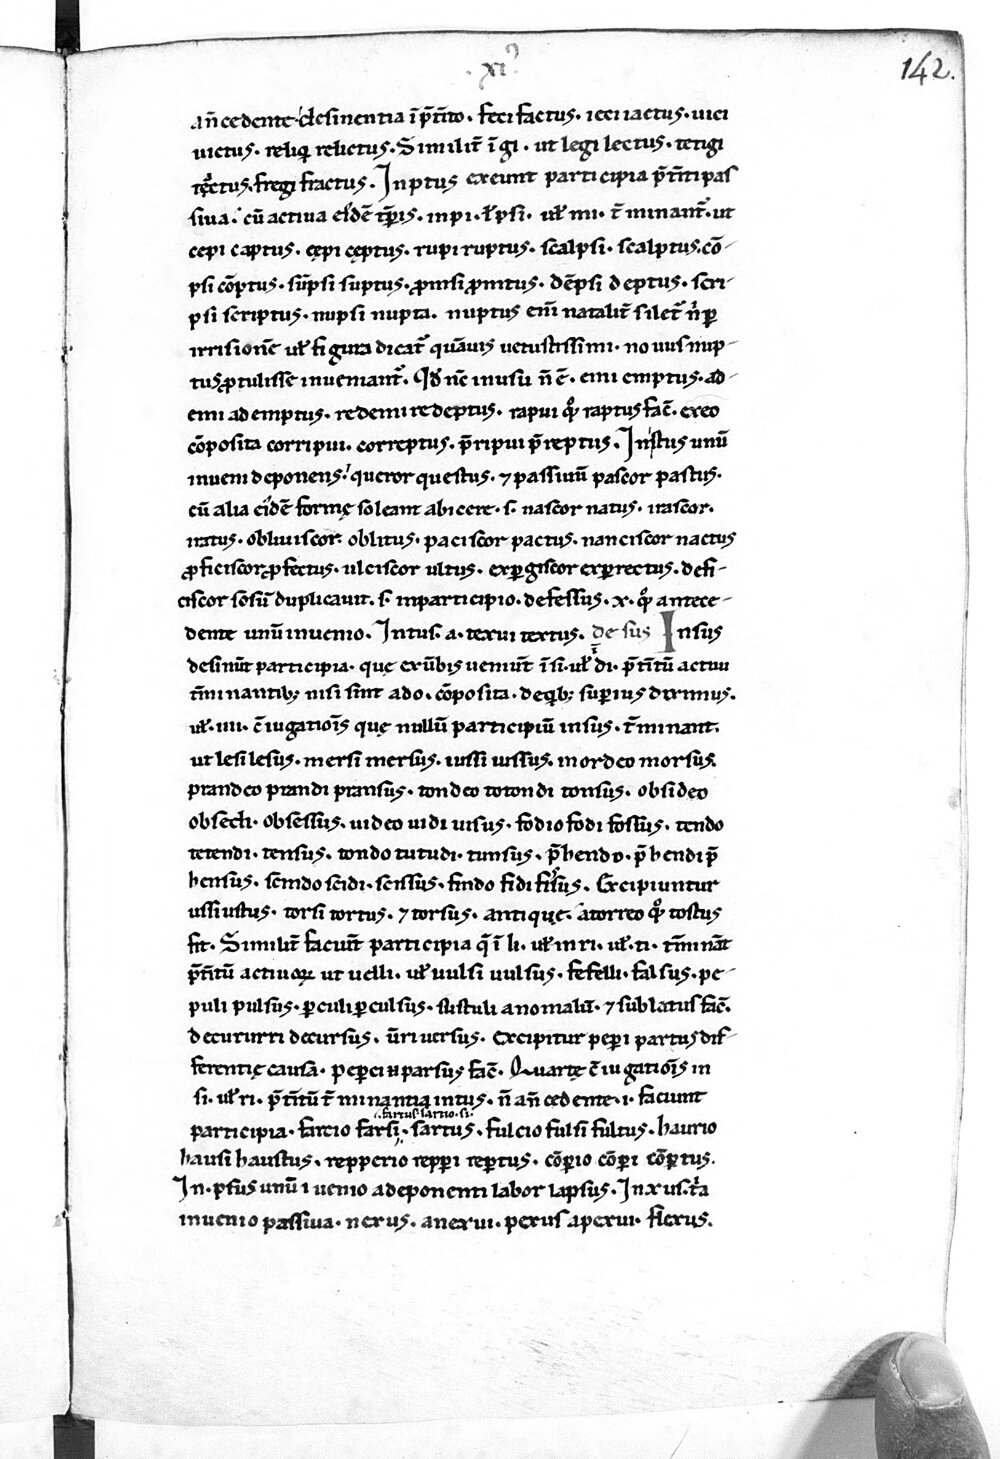 · xi ·
142.
an̄cedente desinentia ī p̄tīto. feci factus. ieci iactus. uici
uictus. reliq relictus. Similit̄ ī gi. ut legi lectus. tetigi
tectus. fregi fractus. In ptus exeunt participia p̄tīti pas
siua. cū actiua eiꝰdē tꝑis. in pi. ł psi. uł mi. t̄minant̄. ut
cepi captus. cępi cęptus. rupi ruptus. scalpsi. scalptus. cō-
psi cōptus. sūpsi suptus. ꝓmsi ꝓmtus. dēpsi deptus. scri-
psi scriptus. nupsi nupta. nuptus em̄ natalit̄ silet̄ n̄ ꝑ
irrisionē uł figura dicat̄ quāuis uetustissimi. no uus nup-
tus ꝓtulisse inueniant̄. Qđ nc̄ in usu n̄ ē. emi emptus. ad-
emi ademptus. redemi redeptus. rapui qͦ raptus fac̄. exeo
cōposita corripui. correptus. p̄ripui p̄reptus. In stus unū
inueni deponens. queror questus. ⁊ passiuū pascor pastus.
cū alia eiꝰdē formę soleant abicere. s. nascor natus. irascor.
iratus. obliuiscor. oblitus. paciscor pactus. nanciscor nactus
ꝓficiscor ꝓfectus. ulciscor ultus. exꝑgiscor exꝑrectus. defi-
ciscor sosū duplicauit. s. in participio. defessus. x. qͦ antece-
dente unū inuenio. In tus. a. texui textus. de sus In sus
desinūt participia. quę ex ūbis ueniūt ī si. uł di. p̄tītū actiui
t̄minantibꝫ nisi sint a do. cōposita. de qbꝫ suꝑius diximus.
uł. iiii. c̄iugatiōis quę nullū participiū in sus. t̄minant.
ut lesi lesus. mersi mersus. iussi iussus. mordeo morsus.
prandeo prandi pransus. tondeo totondi tonsus. obsideo
obsedi. obsessus. uideo uidi uisus. fodio fodi fossus. tendo
tetendi. tensus. tondo tutudi. tunsus. p̄hendo. p̄hendi p̄
hensus. scindo scidi. scissus. findo fidi fisus. Excipiuntur
ussi ustus. torsi tortus. ⁊ torsus. antique. a torreo qͦ tostus
fit. Similit̄ faciūt participia q̄ ī li. uł in ri. uł. ti. t̄mināt
p̄tītū actiuoꝝ ut uelli. uł uulsi uulsus. fefelli. falsus. pe-
puli pulsus. ꝑculi ꝑculsus. sustuli anomalū. ⁊ sublatus fac̄.
decucurri decursus. ūri uersus. Excipitur peꝑi partus dif-
ferentię causa. peꝑci n̄ parsus fac̄. Quartę c̄iugatiōis in
si. uł ri. p̄tītū t̄minantia in tus. n̄ an̄cedente. i. faciunt
fartus sartio. si.
participia. farcio farsi. sartus. fulcio fulsi fultus. haurio
hausi haustus. repperio repꝑi reꝑtus. cōꝑio cōꝑi cōꝑtus.
In. psus unū iuenio a deponenti labor lapsus. In xus. t̄a
inuenio passiua. nexus. a nexui. pexus a pexui. flexus.